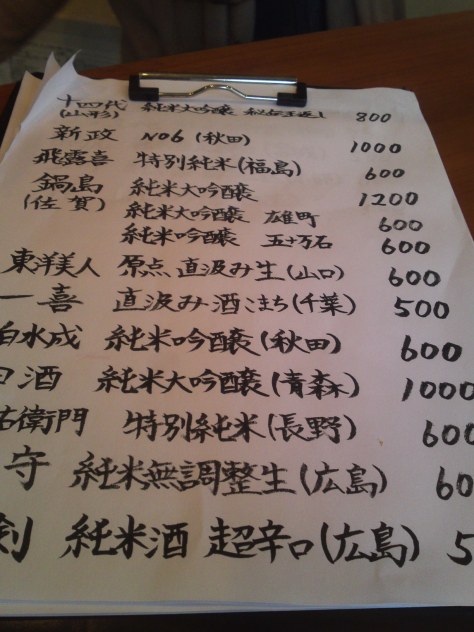 十四代 純米大吟醸 秘伝玉返し 800
(山形)
新政 NO6 (秋田) 1000
飛露喜 特別純米(福島) 600
鍋島 純米大吟醸 1200
(佐賀) 純米大吟醸 雄町 600
純米吟醸 五十万石 600
東洋美人 原点 直汲み生(山口) 600
一喜 直汲み酒こまち(千葉) 500
白水成 純米吟醸(秋田) 600
酒 純米大吟醸(青森) 1000
右衛門 特別純米(長野) 600
守 純米無調整生(広島) 60
剣 純米酒 超辛口(広島) 5